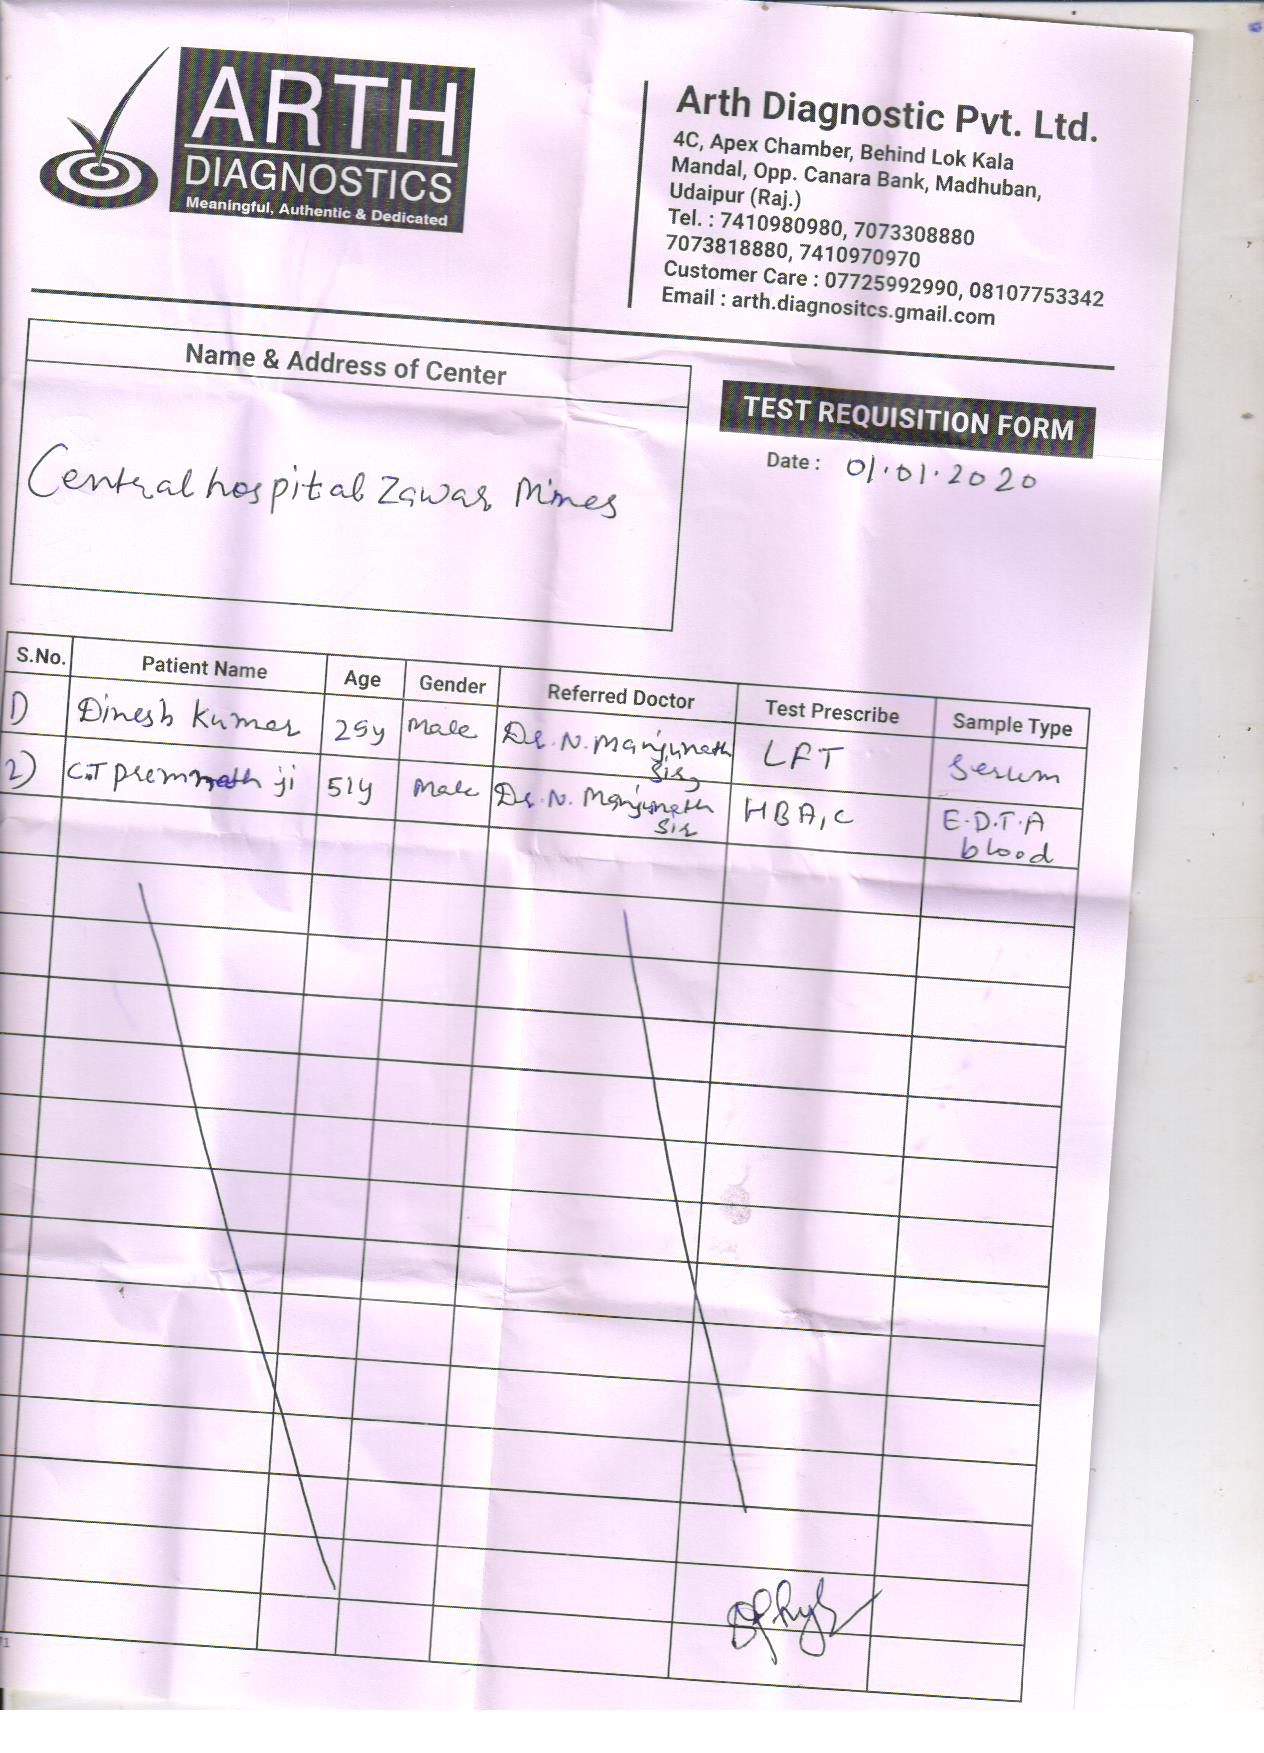 ARTH
DIAGNOSTICS
Meaningful, Authentic & Dedicated
Arth Diagnostic Pvt. Ltd.
4C, Apex Chamber, Behind Lok Kala
Mandal, Opp. Canara Bank, Madhuban,
Udaipur (Raj.)
Tel. : 7410980980, 7073308880
7073818880, 7410970970
Customer Care : 07725992990, 08107753342
Email : arth.diagnositcs.gmail.com
Name & Address of Center
Central hospital Zawar Mines
TEST REQUISITION FORM
Date : 01.01.2020
S.No. Patient Name Age Gender Referred Doctor Test Prescribe Sample Type
1) Dinesh Kumar 29y Male Dr. N. Manjunath Sir LFT Serum
2) C.T premnath ji 51y Male Dr. N. Manjunath Sir HBA1C E.D.T.A blood